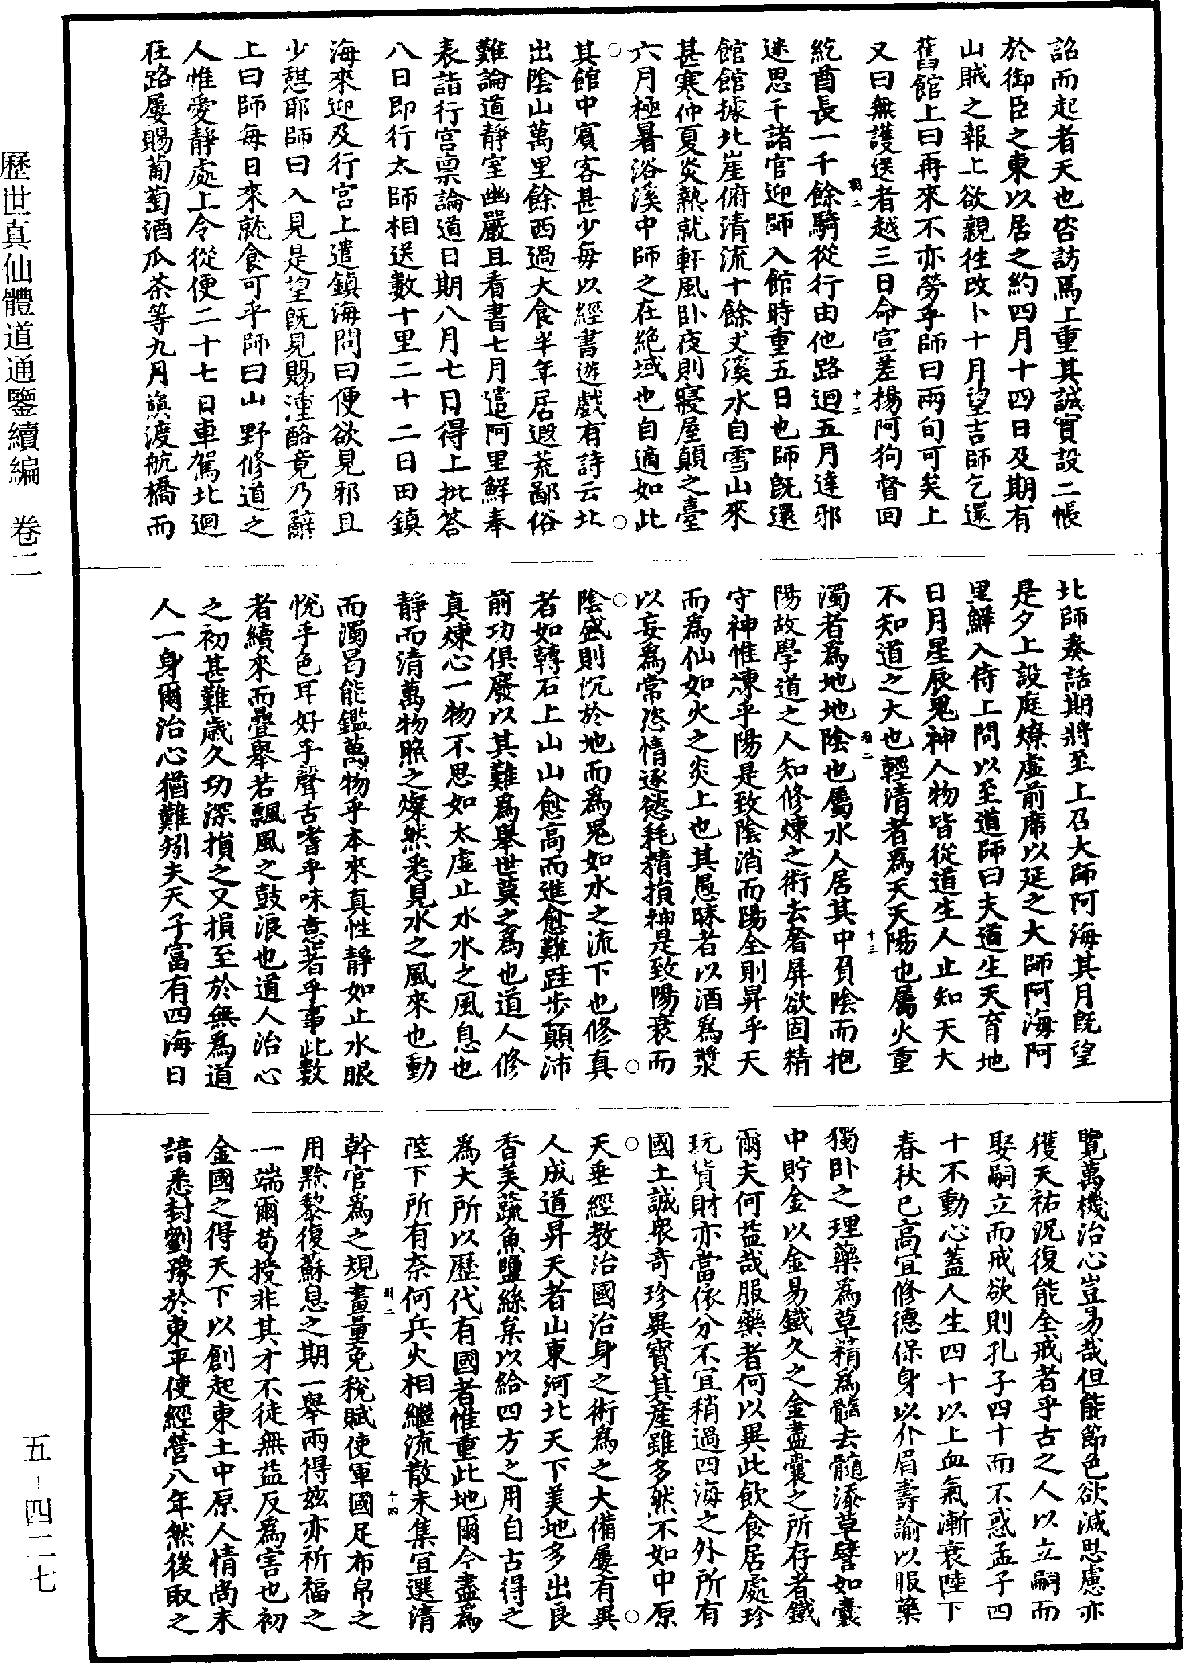 詔而起者天也咨訪焉上重其誠實設二帳
於御臣之東以居之約四月十四日及期有
山賊之報上欲親往改卜十月望吉師乞還
舊館上曰再來不亦勞乎師曰兩旬可矣上
又曰無護送者越三日命宣差楊阿狗督回
紇酋長一千餘騎從行由他路迴五月達邪
迷思干諸官迎師入館時重五日也師既還
館館據北崖俯清流十餘丈溪水自雪山來
甚寒仲夏炎熱就軒風臥夜則寢屋顛之臺
六月極暑浴溪中師之在絕域也自適如此
其館中賓客甚少每以經書遊戲有詩云北
出陰山萬里餘西過大食半年居遐荒鄙俗
難論道靜室幽嚴且看書七月遣阿里鮮奉
表詣行宮禀論道日期八月七日得上批答
八日即行太師相送數十里二十二日田鎮
海來迎及行宮上遣鎮海問曰便欲見邪且
少憩耶師曰入見是望既見賜湩酪竟乃辭
上曰師每日來就食可乎師曰山野修道之
人惟愛靜處上令從便二十七日車駕北迴
在路屢賜葡萄酒瓜茶等九月旗渡航橋而
北師奏話期將至上召大師阿海其月既望
是夕上設庭燎虛前席以延之大師阿海阿
里鮮入侍上問以至道師曰夫道生天育地
日月星辰鬼神人物皆從道生人止知天大
不知道之大也輕清者為天天陽也屬火重
濁者為地地陰也屬水人居其中負陰而抱
陽故學道之人知修煉之術去奢屏欲固精
守神惟凍乎陽是致陰消而陽全則昇乎天
而為仙如火之炎上也其愚昧者以酒為漿
以妄為常恣情逐慾耗精損神是致陽衰而
陰盛則沉於地而為鬼如水之流下也修真
者如轉石上山山愈高而進愈難跬步顛沛
前功俱廢以其難為舉世莫之為也道人修
真煉心一物不思如太虛止水水之風息也
靜而清萬物照之燦然悉見水之風來也動
而濁曷能鑑萬物乎本來真性靜如止水眼
悅乎色耳好乎聲舌嗜乎味意著乎事此數
者續來而疊舉若飄風之鼓浪也道人治心
之初甚難歲久功深損之又損至於無為道
人一身爾治心猶難矧夫天子富有四海日
覽萬機治心豈易哉但能節色欲減思慮亦
獲天祐況復能全戒者乎古之人以立嗣而
娶嗣立而戒欲則孔子四十而不惑孟子四
十不動心蓋人生四十以上血氣漸衰陛下
春秋已高宜修德保身以介眉壽諭以服藥
獨臥之理藥為草精為髓去髓添草譬如囊
中貯金以金易鐵久之金盡囊之所存者鐵
爾夫何益哉服藥者何以異此飲食居處珍
玩貨財亦當依分不宜稍過四海之外所有
國土誠眾奇珍異寶其產雖多然不如中原
天垂經教治國治身之術為之大備屢有異
人成道昇天者山東河北天下美地多出良
香美蔬魚鹽絲枲以給四方之用自古得之
為大所以歷代有國者惟重此地爾今盡為
陛下所有奈何兵火相繼流散未集宜選清
幹官為之規畫量免稅賦使軍國足布帛之
用黔黎復蘇息之期一舉兩得茲亦祈福之
一端爾苟授非其才不徒無益反為害也初
金國之得天下以創起東土中原人情尚未
諳悉封劉豫於東平使經營八年然後取之
歷世真仙體道通鑒續編　卷二
五-四二七